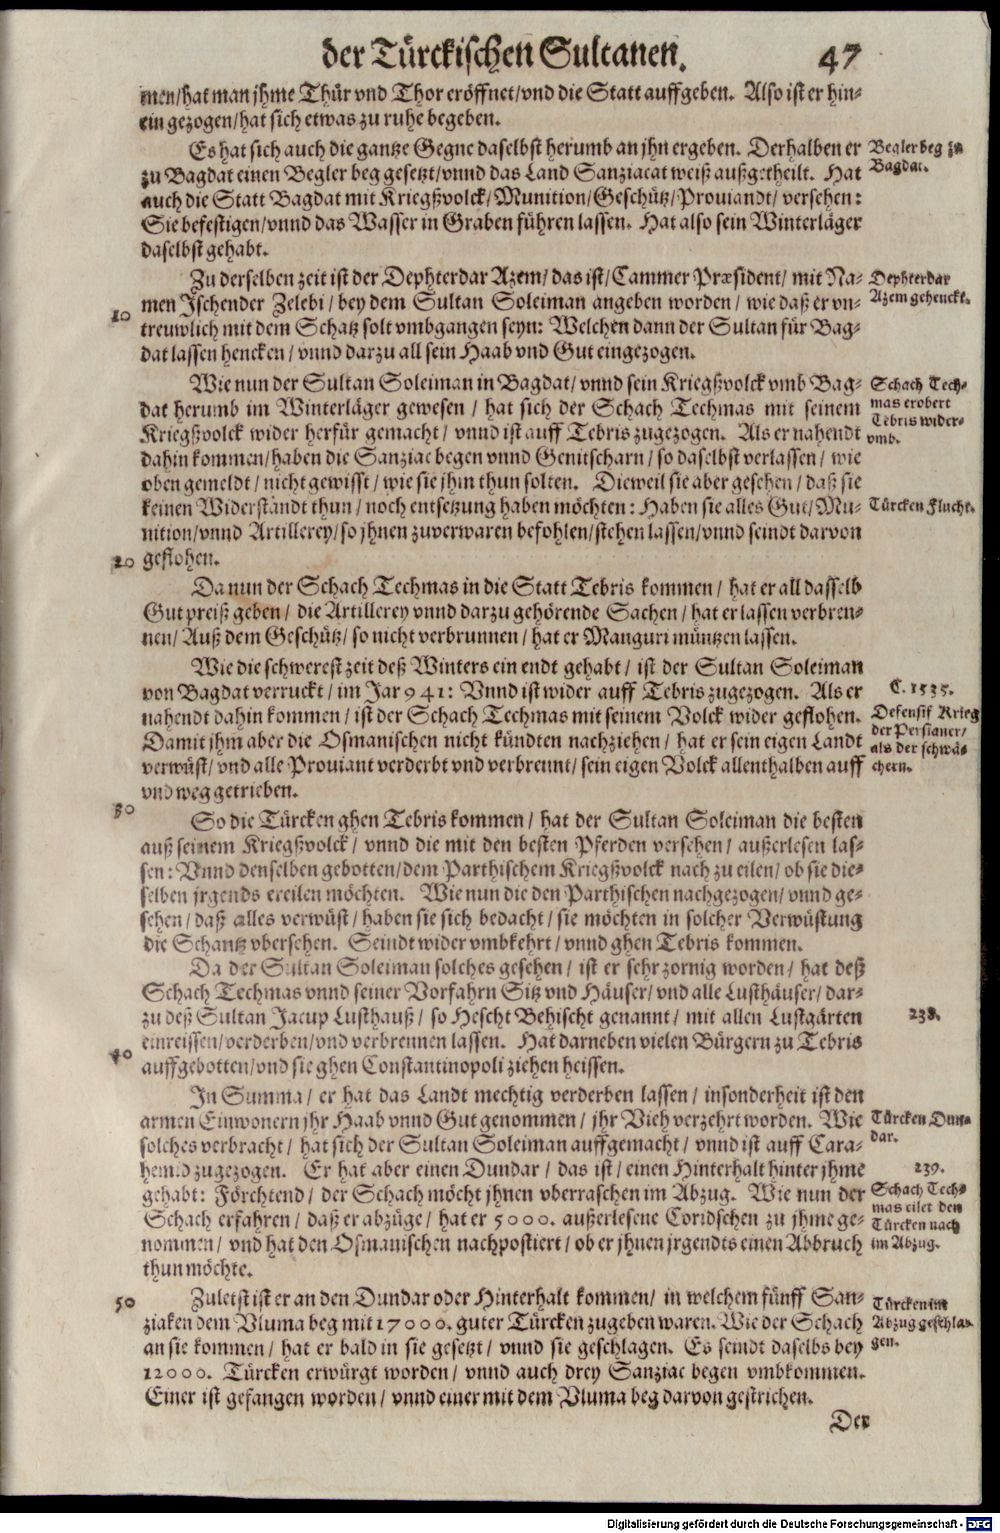 der Türckischen Sultanen. 47
men/hat man jhme Thür vnd Thor eröffnet/vnd die Statt auffgeben. Also ist er hin-
ein gezogen/hat sich etwas zu ruhe begeben.
Es hat sich auch die gantze Gegne daselbst herumb an jhn ergeben. Derhalben er
Begler beg zu
zu Bagdat einen Begler beg gesetzt/vnnd das Land Sanziacat weiß außgetheilt. Hat
Bagdat.
auch die Statt Bagdat mit Kriegßvolck/Munition/Geschütz/Prouiandt/versehen:
Sie befestigen/vnnd das Wasser in Graben führen lassen. Hat also sein Winterläger
daselbst gehabt.
Zu derselben zeit ist der Dephterdar Azem/das ist/Cammer Præsident/mit Na-
Dephterdar
men Ischender Zelebi/bey dem Sultan Soleiman angeben worden/wie daß er vn-
Azem gehenckt.
10
treuwlich mit dem Schatz solt vmbgangen seyn: Welchen dann der Sultan für Bag-
dat lassen hencken/vnnd darzu all sein Haab vnd Gut eingezogen.
Wie nun der Sultan Soleiman in Bagdat/vnnd sein Kriegßvolck vmb Bag-
Schach Tech-
dat herumb im Winterläger gewesen/hat sich der Schach Techmas mit seinem
mas erobert
Kriegßvolck wider herfür gemacht/vnnd ist auff Tebris zugezogen. Als er nahendt
Tebris wider-
vmb.
dahin kommen/haben die Sanziac begen vnnd Genitscharn/so daselbst verlassen/wie
oben gemeldt/nicht gewisst/wie sie jhm thun solten. Dieweil sie aber gesehen/daß sie
keinen Widerstandt thun/noch entsetzung haben möchten: Haben sie alles Gut/Mu-
Türcken Flucht.
nition/vnnd Artillerey/so jhnen zuverwaren befohlen/stehen lassen/vnnd seindt darvon
20
geflohen.
Da nun der Schach Techmas in die Statt Tebris kommen/hat er all dasselb
Gut preiß geben/die Artillerey vnnd darzu gehörende Sachen/hat er lassen verbren-
nen/Auß dem Geschütz/so nicht verbrunnen/hat er Manguri müntzen lassen.
Wie die schwerest zeit deß Winters ein endt gehabt/ist der Sultan Soleiman
von Bagdat verruckt/im Jar 941: Vnnd ist wider auff Tebris zugezogen. Als er
C. 1535.
nahendt dahin kommen/ist der Schach Techmas mit seinem Volck wider geflohen.
Defensif Krieg
Damit jhm aber die Osmanischen nicht kündten nachziehen/hat er sein eigen Landt
der Persianer/
als der schwä-
verwüst/vnd alle Prouiant verderbt vnd verbrennt/sein eigen Volck allenthalben auff
chern.
vnd weg getrieben.
30
So die Türcken ghen Tebris kommen/hat der Sultan Soleiman die besten
auß seinem Kriegßvolck/vnnd die mit den besten Pferden versehen/außerlesen las-
sen: Vnnd denselben gebotten/dem Parthischem Kriegßvolck nach zu eilen/ob sie die-
selben jrgends ereilen möchten. Wie nun die den Parthischen nachgezogen/vnnd ge-
sehen/daß alles verwüst/haben sie sich bedacht/sie möchten in solcher Verwüstung
die Schantz vbersehen. Seindt wider vmbkehrt/vnnd ghen Tebris kommen.
Da der Sultan Soleiman solches gesehen/ist er sehr zornig worden/hat deß
Schach Techmas vnnd seiner Vorfahrn Sitz vnd Häuser/vnd alle Lusthäuser/dar-
zu deß Sultan Jacup Lusthauß/so Hescht Behischt genannt/mit allen Lustgärten
238.
einreissen/verderben/vnd verbrennen lassen. Hat darneben vielen Bürgern zu Tebris
40
auffgebotten/vnd sie ghen Constantinopoli ziehen heissen.
In Summa/er hat das Landt mechtig verderben lassen/insonderheit ist den
armen Einwonern jhr Haab vnnd Gut genommen/jhr Vieh verzehrt worden. Wie
Türcken Dun-
solches verbracht/hat sich der Sultan Soleiman auffgemacht/vnnd ist auff Cara-
dar.
hemid zugezogen. Er hat aber einen Dundar/das ist/einen Hinterhalt hinter jhme
239.
gehabt: Förchtend/der Schach möcht jhnen vberraschen im Abzug. Wie nun der
Schach Tech-
mas eilet den
Schach erfahren/daß er abzüge/hat er 5000. außerlesene Coridschen zu jhme ge-
Türcken nach
nommen/vnd hat den Osmanischen nachpostiert/ob er jhnen jrgendts einen Abbruch
im Abzug.
thun möchte.
50
Zuletst ist er an den Dundar oder Hinterhalt kommen/in welchem fünff San-
Türcken im
ziaken dem Vluma beg mit 17000. guter Türcken zugeben waren. Wie der Schach
Abzug geschla-
an sie kommen/hat er bald in sie gesetzt/vnnd sie geschlagen. Es seindt daselbs bey
gen.
12000. Türcken erwürgt worden/vnnd auch drey Sanziac begen vmbkommen.
Einer ist gefangen worden/vnnd einer mit dem Vluma beg darvon gestrichen.
Der
Digitalisierung gefördert durch die Deutsche Forschungsgemeinschaft - DFG